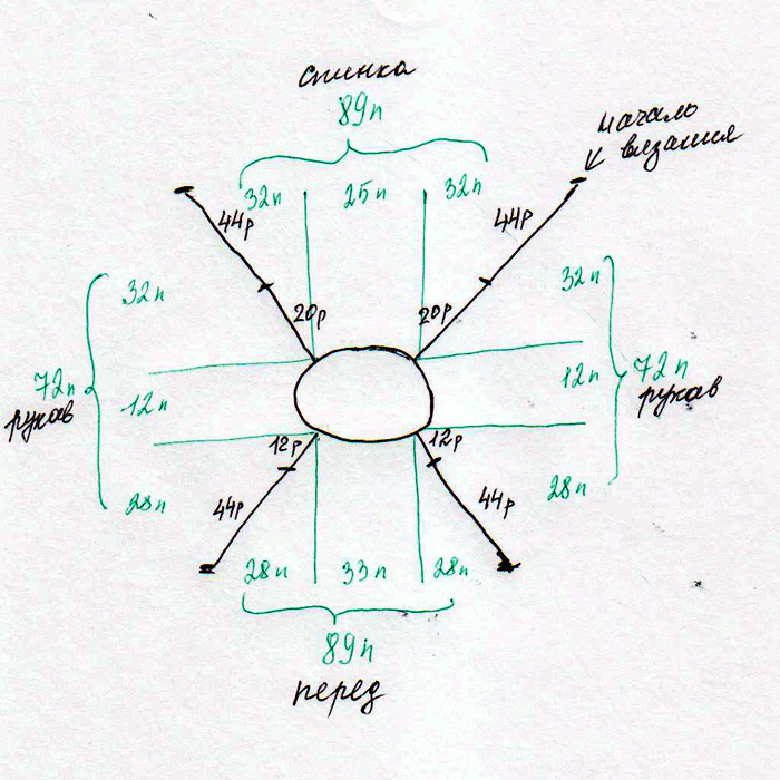 спинка
89п
начало
вязания
32п 25п 32п
44р 44р
32п 32п
20р 20р
72п 12п 12п 72п
рукав рукав
12р 12р
28п 28п
44р 44р
28п 33п 28п
89п
перед